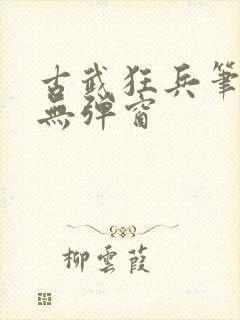 古武狂兵筆
無弹窗
柳雲葭